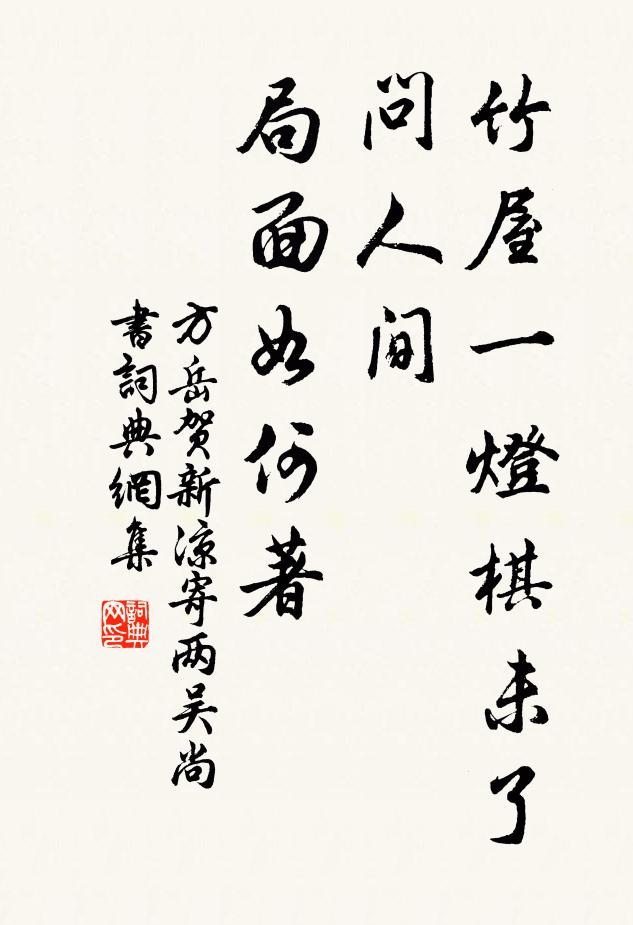 竹屋一燈棋未了
問人间
局面如何著
方岳贺新涼寄两吴尚
書詞典網集
詞典网印